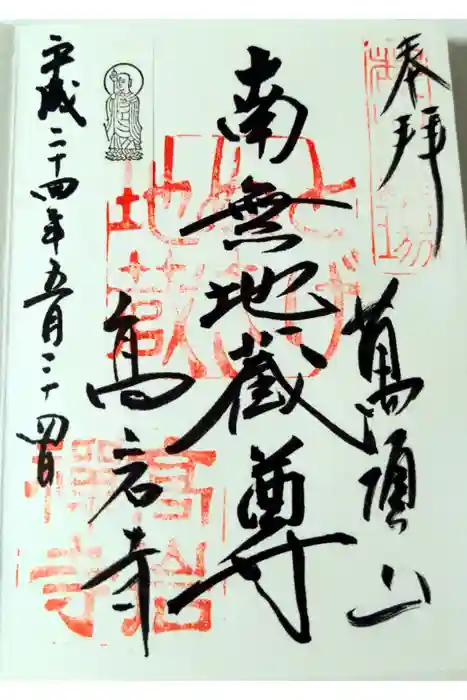 奉拝
萬頂山
南無地蔵尊
高岩寺
平成二十四年五月二十四日
とげ
ぬき
地蔵
高岩
禪寺